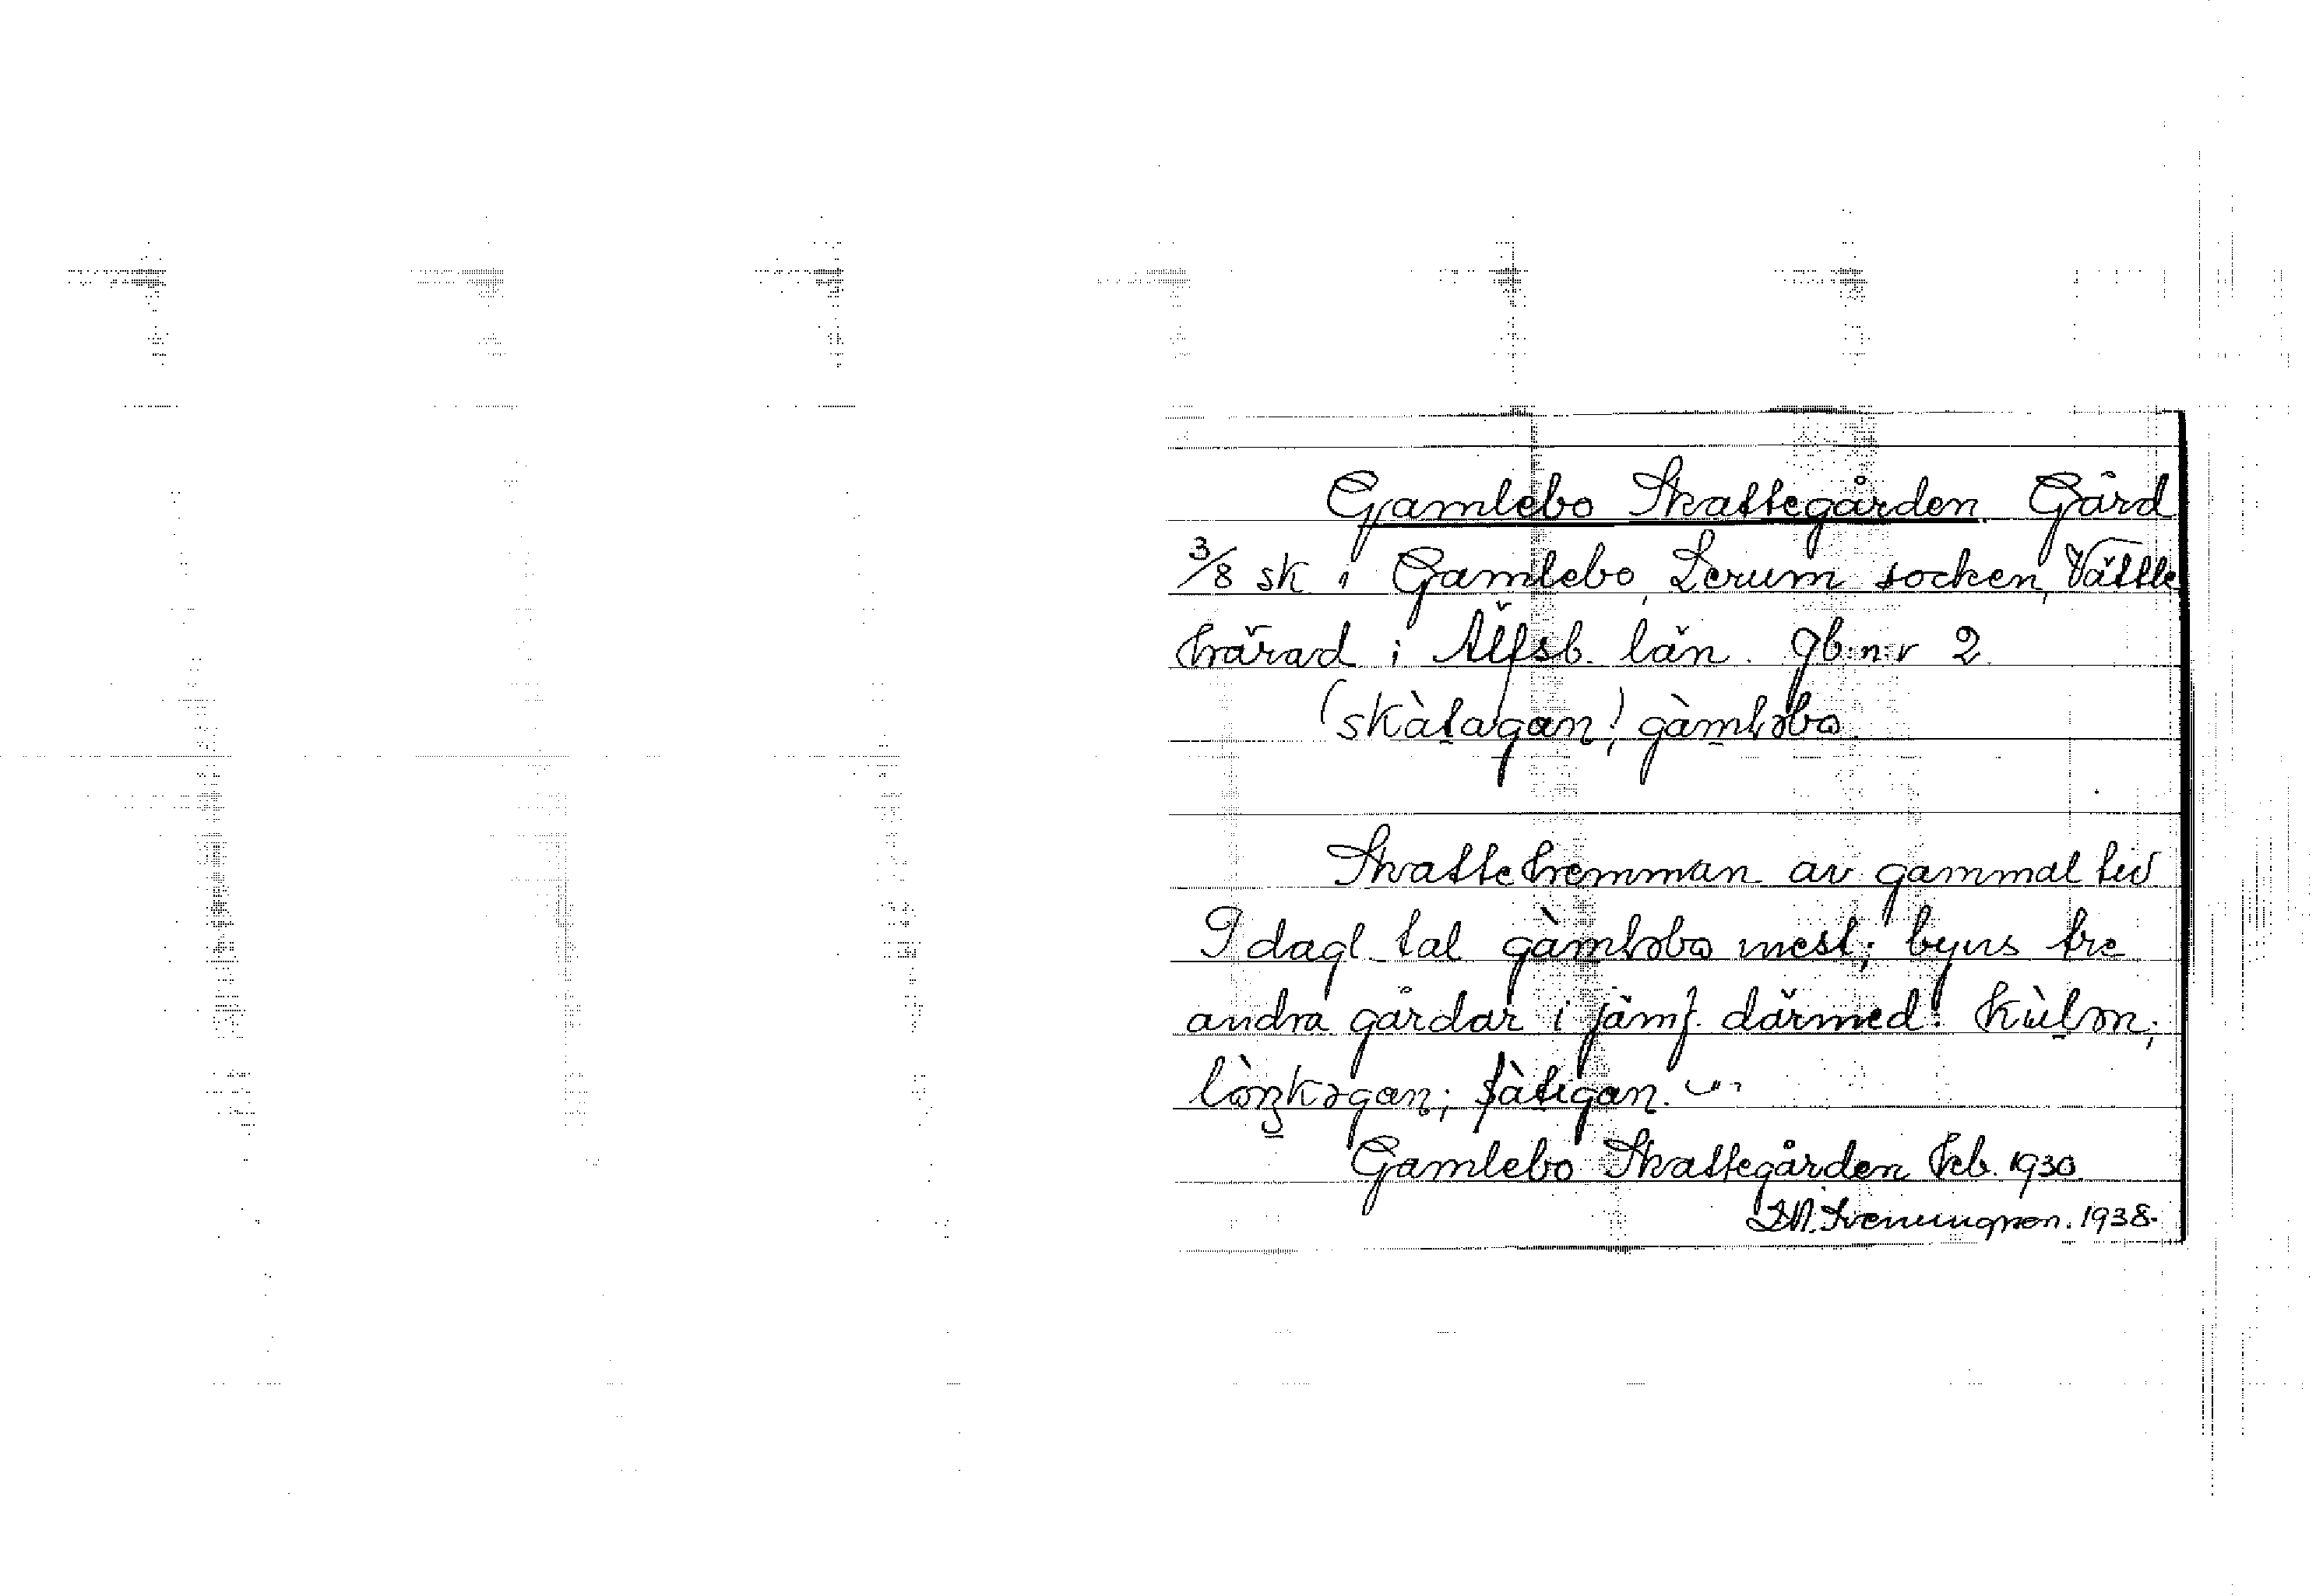 Gamlebo Skattegården Gård
3/8 sk i Gamlebo, Lerum socken, Vättle
härad i Älfsb. län. gb:n:r 2
(skàtagan) gàmləbo.
Skattehemman av gammal tid
I dagl. tal gàmləbo mest; byns tre
andra gårdar i jämf. därmed: kùlən;
làŋkəgan; fàtigan.
Gamlebo Skattegården Feb. 1930
1938.